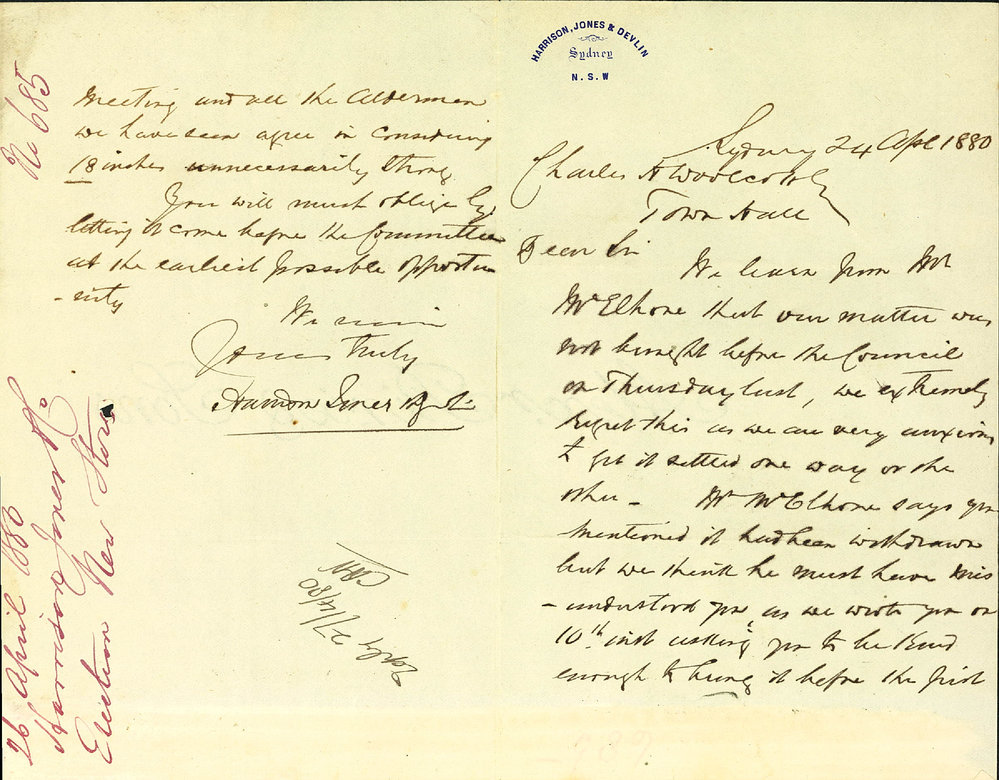 HARRISON, JONES & DEVLIN
Sydney
N. S. W
Sydney 24 Apl 1880
Charles H Woolcott
Town Hall
Dear Sir
We learn from Mr
McElhone that our matter was
not brought before the Council
on Thursday last, we extremely
regret this as we are very anxious
to get it settled one way or the
other - Mr McElhone says you
mentioned it had been withdrawn
but we think he must have mis
- understood you, as we wrote you on
10th inst asking you to be kind
enough to bring it before the first
Meeting and all the Aldermen
we have seen agree in considering
18 inches unnecessarily strong
You will much oblige by
letting it come before the Committee
at the earliest possible opportu
- nity
We remain
Yours truly
Harrison Jones Devlin
No 685
26 April 1880
Harrison Jones & Co
Erection New Store
Reply 27/4/80